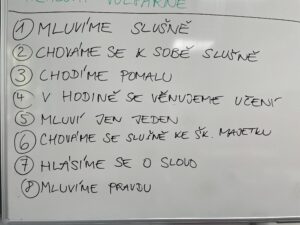 ① MLUVÍME SLUŠNĚ
② CHOVÁME SE K SOBĚ SLUŠNĚ
③ CHODÍME POMALU
④ V HODINĚ SE VĚNUJEME UČENÍ
⑤ MLUVÍ JEN JEDEN
⑥ CHOVÁME SE SLUŠNĚ KE ŠK. MAJETKU
⑦ HLÁSÍME SE O SLOVO
⑧ MLUVÍME PRAVDU